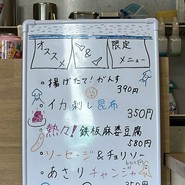 オススメ & 限定メニュー
・揚げたて!がんす
390円
・イカ刺し昆布
350円
・熱々!鉄板麻婆豆腐
580円
・ソーセージ&チョリソー
・あさりチャンジャ
350円